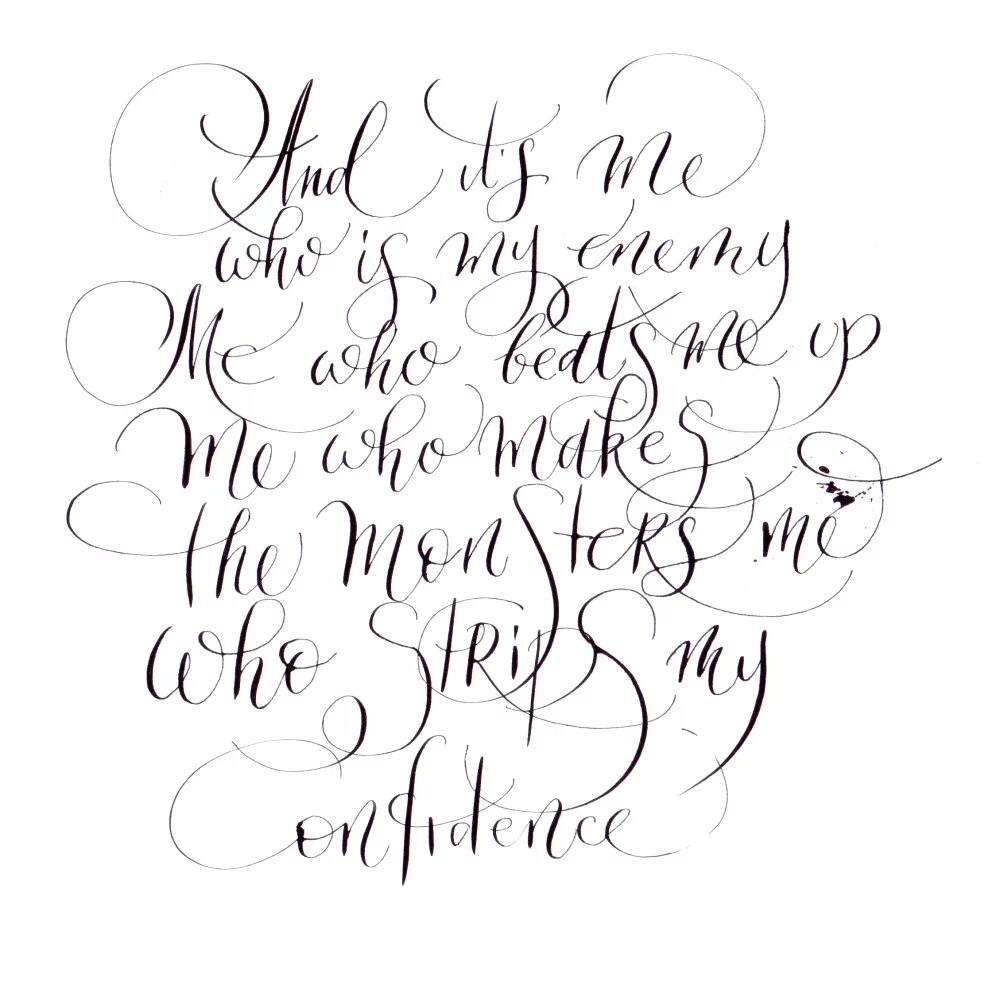 And it's me
who is my enemy
Me who beats me up
Me who makes
the Monsters me
who strips my
confidence